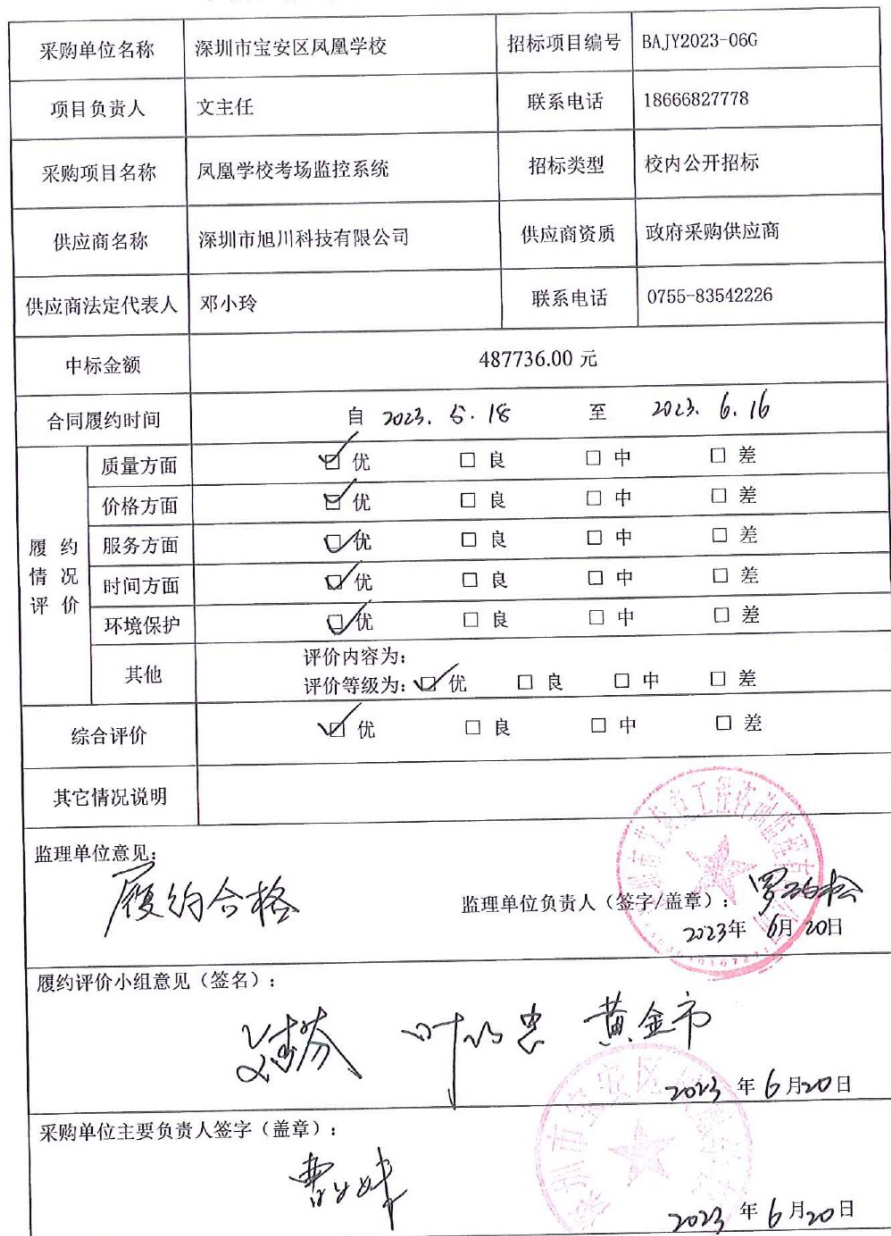 采购单位名称 深圳市宝安区凤凰学校 招标项目编号 BAJY2023-06G
项目负责人 文主任 联系电话 18666827778
采购项目名称 凤凰学校考场监控系统 招标类型 校内公开招标
供应商名称 深圳市旭川科技有限公司 供应商资质 政府采购供应商
供应商法定代表人 邓小玲 联系电话 0755-83542226
中标金额 487736.00 元
合同履约时间 自 2023. 5. 18 至 2023. 6. 16
履约情况评价
质量方面 □ 优 □ 良 □ 中 □ 差
价格方面 □ 优 □ 良 □ 中 □ 差
服务方面 □ 优 □ 良 □ 中 □ 差
时间方面 □ 优 □ 良 □ 中 □ 差
环境保护 □ 优 □ 良 □ 中 □ 差
其他 评价内容为：
评价等级为：□ 优 □ 良 □ 中 □ 差
综合评价 □ 优 □ 良 □ 中 □ 差
其它情况说明
监理单位意见：
履约合格
监理单位负责人（签字/盖章）：
2023年 6月20日
履约评价小组意见（签名）：
黄金市
2023 年 6 月20日
采购单位主要负责人签字（盖章）：
2023 年 6 月20日